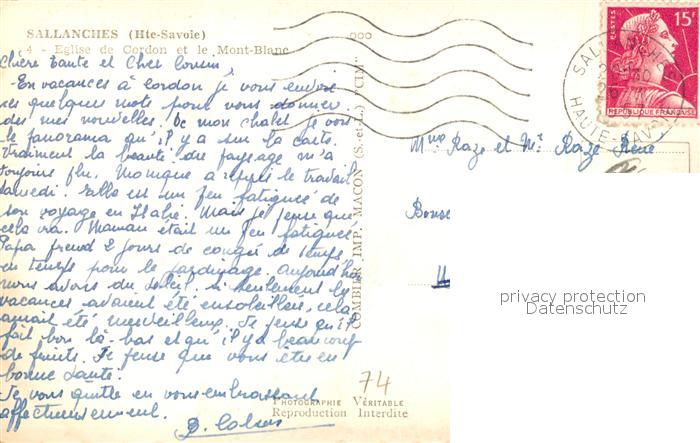 SALLANCHES (Hte-Savoie)
4 - Eglise de Cordon et le Mont-Blanc
Chère Tante et Cher Cousin,
En vacances à Cordon je vous envoie
ces quelques mots pour vous donner
des mes nouvelles. De mon chalet je vois
le panorama qu'il y a sur la carte.
Vraiment la beauté du paysage m'a
toujours plu. Monique a repris le travail
samedi. Elle est un peu fatiguée de
son voyage en Italie. Mais je pense que
cela ira. Maman était un peu fatiguée
Papa prend 2 jours de congé de temps
en temps pour le jardinage. Aujourd'hui
nous avons du soleil. si seulement les
vacances avaient été ensoleillées, cela
aurait été merveilleux. Je pense qu'il
fait bon là-bas et qu'il y a beaucoup
de fruits. Je pense que vous êtes en
bonne santé.
Je vous quitte en vous embrassant
affectueusement.
COMBIER IMP. MACON (S.-et-L.) "CIM"
PHOTOGRAPHIE VÉRITABLE
Reproduction Interdite
74
POSTES
15F
REPUBLIQUE FRANÇAISE
HAUTE-SAV
Mme Raze et Mr Raze René
privacy protection
Datenschutz